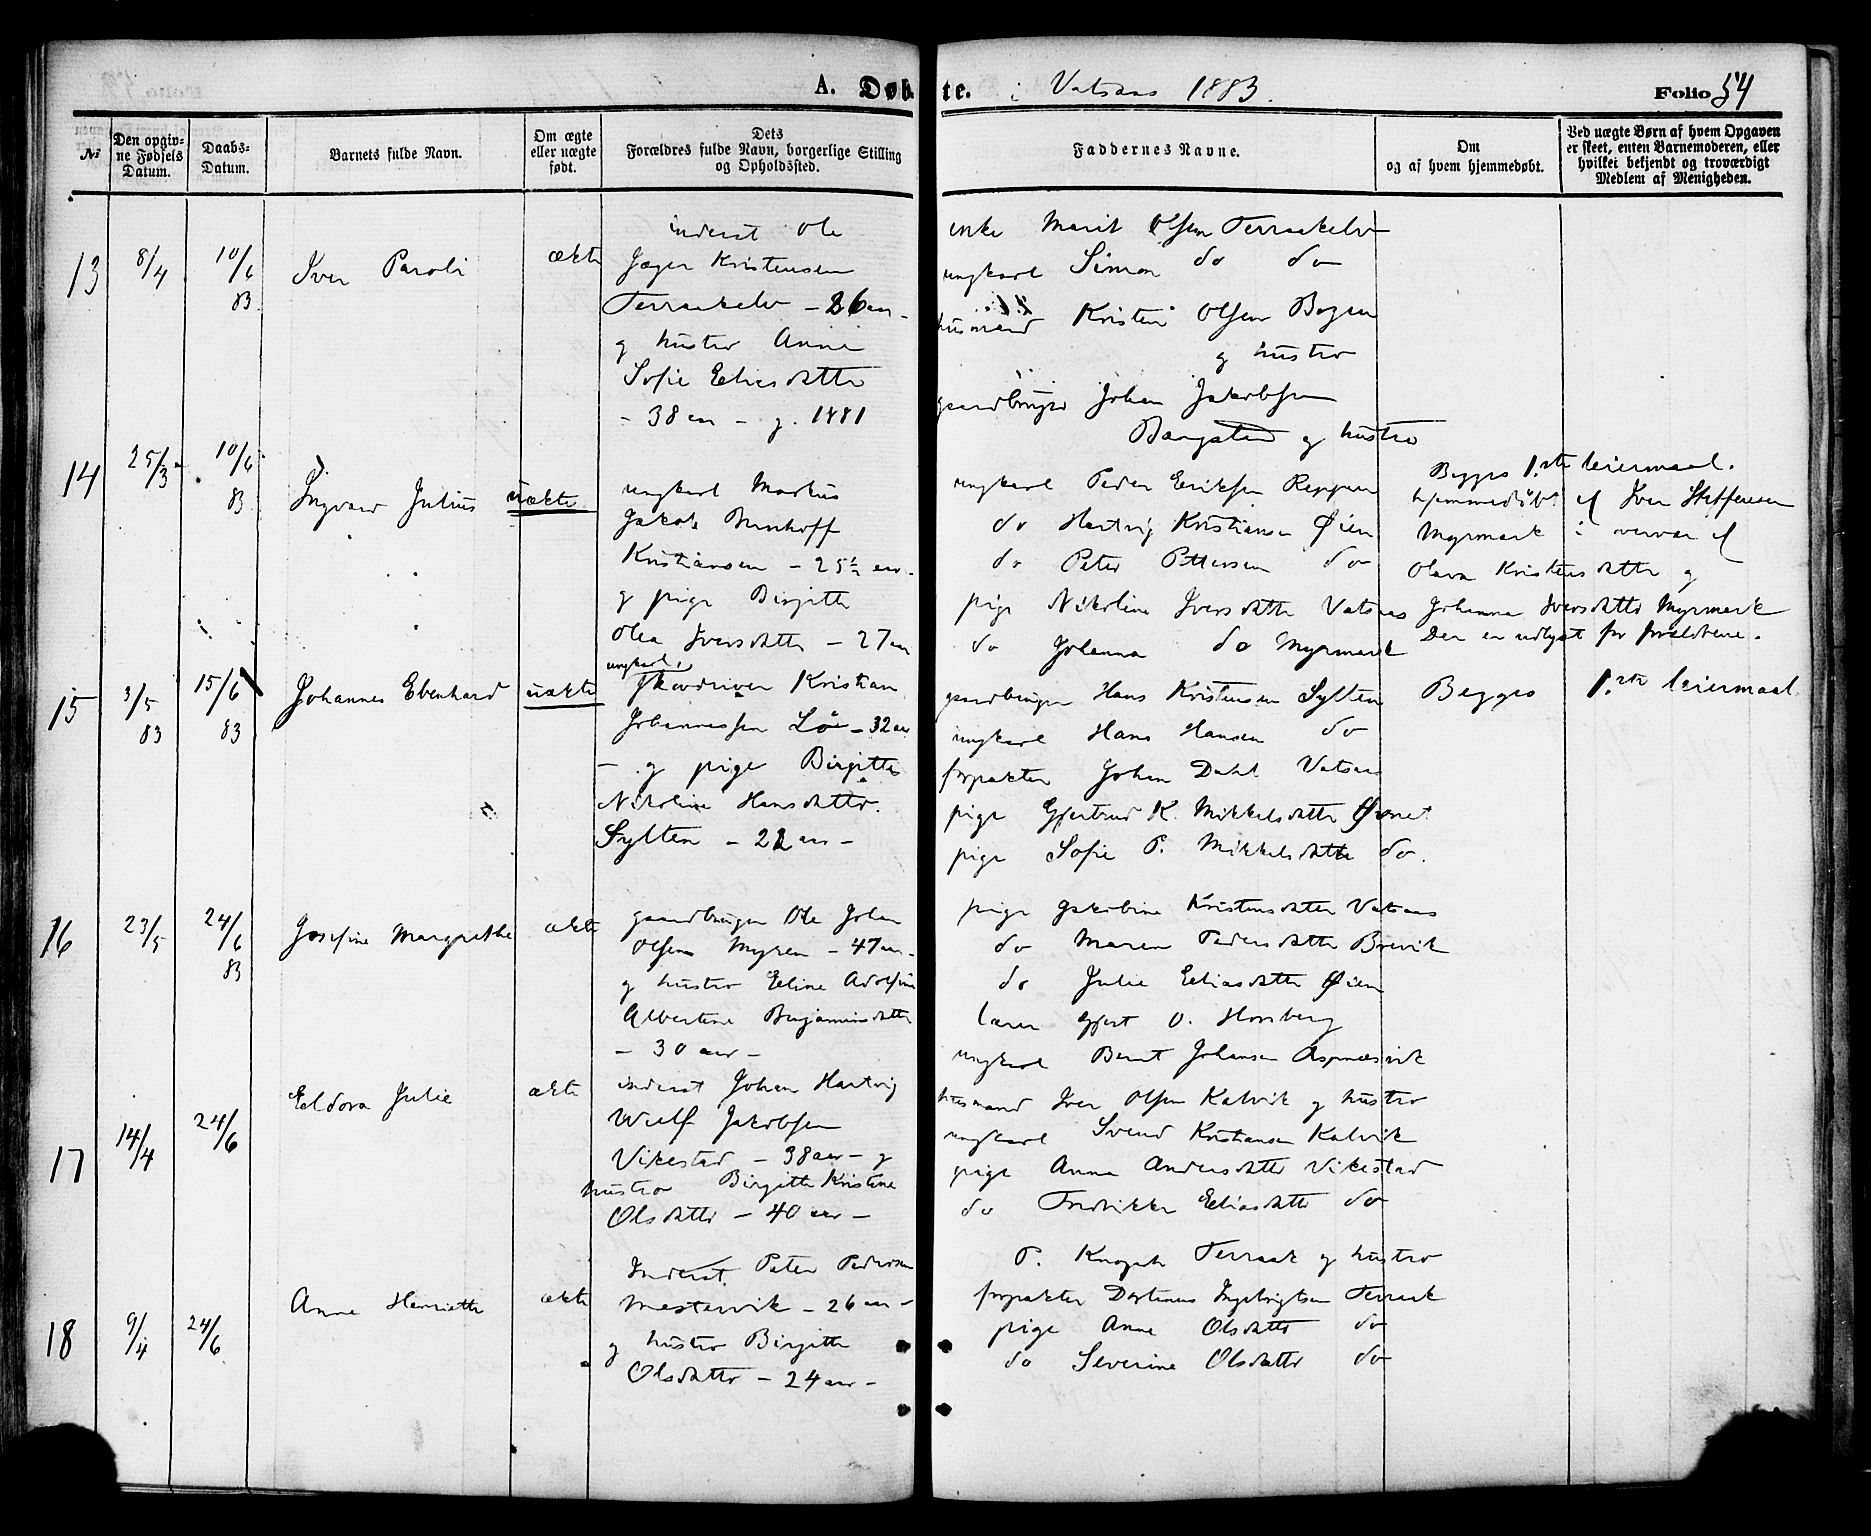 A. Døbte. i Vatsaas 1883. Folio 54
№
Den opgivne Fødsels Datum.
Daabs-Datum.
Barnets fulde Navn.
Om ægte eller uægte født.
Dets Forældres fulde Navn, borgerlige Stilling og Opholdssted.
Faddernes Navne.
Om og af hvem hjemmedøbt.
Ved uægte Børn af hvem Opgaven er skeet, enten Barnemoderen, eller hvilket bekjendt og troværdigt Medlem af Menigheden.
13 8/4 10/6 83 Iver Paroli ækte
inderst Ole
Jæger Kristensen
Terraakelv - 26 aar -
g hustro Anne
Sofie Eliasdatter
- 38 aar - g. 1881
enke Marit Olsen Terraakelv
ungkarl Simon do do
husmand Kristen Olsen Bogen
g hustro
gaardbruger Johan Jakobsen
Bangstad g hustro
14 25/3 10/6 83 Ingvard Julius uækte
ungkarl Markus
Jakob
Kristiansen - 25½ aar -
g pige Birgitte
Olea Iversdatter - 27 aar
ungkarl Peder Eriksen Reppen
do Hartvig Kristiansen Øien
do Peter Pettersen do
pige Nikoline Iversdatter Vatsaas
do Johanna do Myrmark
Begges 1.ste leiermaal.
hjemmedøbt af Iver Steffensen
Myrmark i overvær af
Olava Kristensdatter g
Johanna Iversdatter Myrmark
Den er udlyst for forældrene.
15 3/5 83 15/6 83 Johannes Ebenhard uækte
ungkarl,
Skovdriver Kristian
Johannessen Lø - 32 aar
- g pige Birgitte
Nikoline Hansdatter.
Sylten - 22 aar -
gaardbruger Hans Kristensen Sylten
ungkarl Hans Hansen do
forpakter Johan Dahl Vatsaas
pige Gjertrud K. Mikkelsdatter Øvret
pige Sofie P. Mikkelsdatter do.
Begges 1.ste leiermaal
16 23/5 24/6 83 Josefine Margrethe ækte
gaardbruger Ole Johan
Olsen Myren - 47 aar -
g hustro Eline Adolfine
Albertine Benjaminsdatter
- 30 aar -
pige Jakobine Kristensdatter Vatsaas
do Maren Pedersdatter Brevik
do Julie Eliasdatter Øien
lærer Gjert O. Horsberg
ungkarl Bernt Johansen Aspnæsvik
17 14/4 24/6 Eldora Julie ækte
inderst Johan Hartvig
Wulf Jakobsen
Vikestad - 38 aar - g
hustro Birgitte Kristine
Olsdatter - 40 aar -
husmand Iver Olsen Kalvik g hustro
ungkarl Svend Kristiansen Kalvik
pige Anna Andersdatter Vikestad
do Fredrikke Eliasdatter do
18 9/4 24/6 Anne Henriette ækte
Inderst. Peter Pedersen
Mestervik - 26 aar -
g hustro Birgitte
Olsdatter - 24 aar -
P. Knoph Terraak g hustro
forpakter Dortinus Ingebrigtsen Terraak
pige Anne Olsdatter do
do Severine Olsdatter do